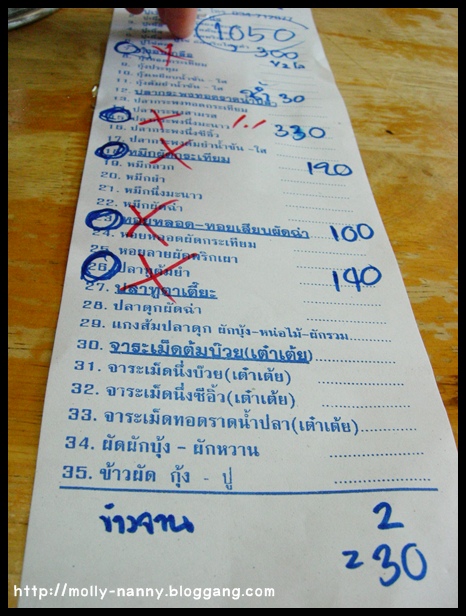 1050
300
½ โล
10. กุ้งเหนียบน้ำซัน - ใส
12. ปลากะพงทอดราดน้ำปลา
น้ำ 30
13. ปลากระพงทอดกระเทียม
15. ปลากระพงนึ่งมะนาว
330
16. ปลากระพงนึ่งซีอิ๊ว
17. ปลากระพงต้มยำน้ำซัน - ใส
18. หมึกผัดกระเทียม
120
19. หมึกลวก
20. หมึกยำ
21. หมึกนึ่งมะนาว
22. หมึกผัดฉ่า
23. หอยหลอด-หอยเสียบผัดฉ่า 100
24. หอยหลอดผัดกระเทียม
25. หอยลายผัดพริกเผา
26. ปลาทูต้มยำ 140
27. ปลาทูอาเตี๊ยะ
28. ปลาดุกผัดฉ่า
29. แกงส้มปลาดุก ผักบุ้ง-หน่อไม้-ผักรวม
30. จาระเม็ดต้มบ๊วย(เต๋าเต้ย)
31. จาระเม็ดนึ่งบ๊วย(เต๋าเต้ย)
32. จาระเม็ดนึ่งซีอิ้ว(เต๋าเต้ย)
33. จาระเม็ดทอดราดน้ำปลา(เต๋าเต้ย)
34. ผัดผักบุ้ง - ผักหวาน
35. ข้าวผัด กุ้ง - ปู
ข้าวจาน 2
= 30
http://molly-nanny.bloggang.com